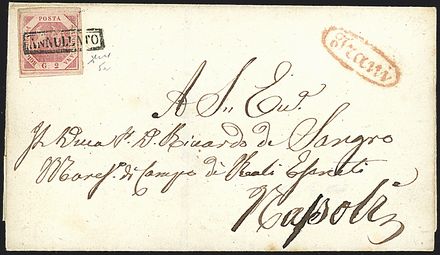 POSTA
ANNULLATO
G 2
Trani
A Su Ecc.
Il Duca D. Riccardo de Sangro
Maresc. di Campo de Reali Eserciti
Napoli